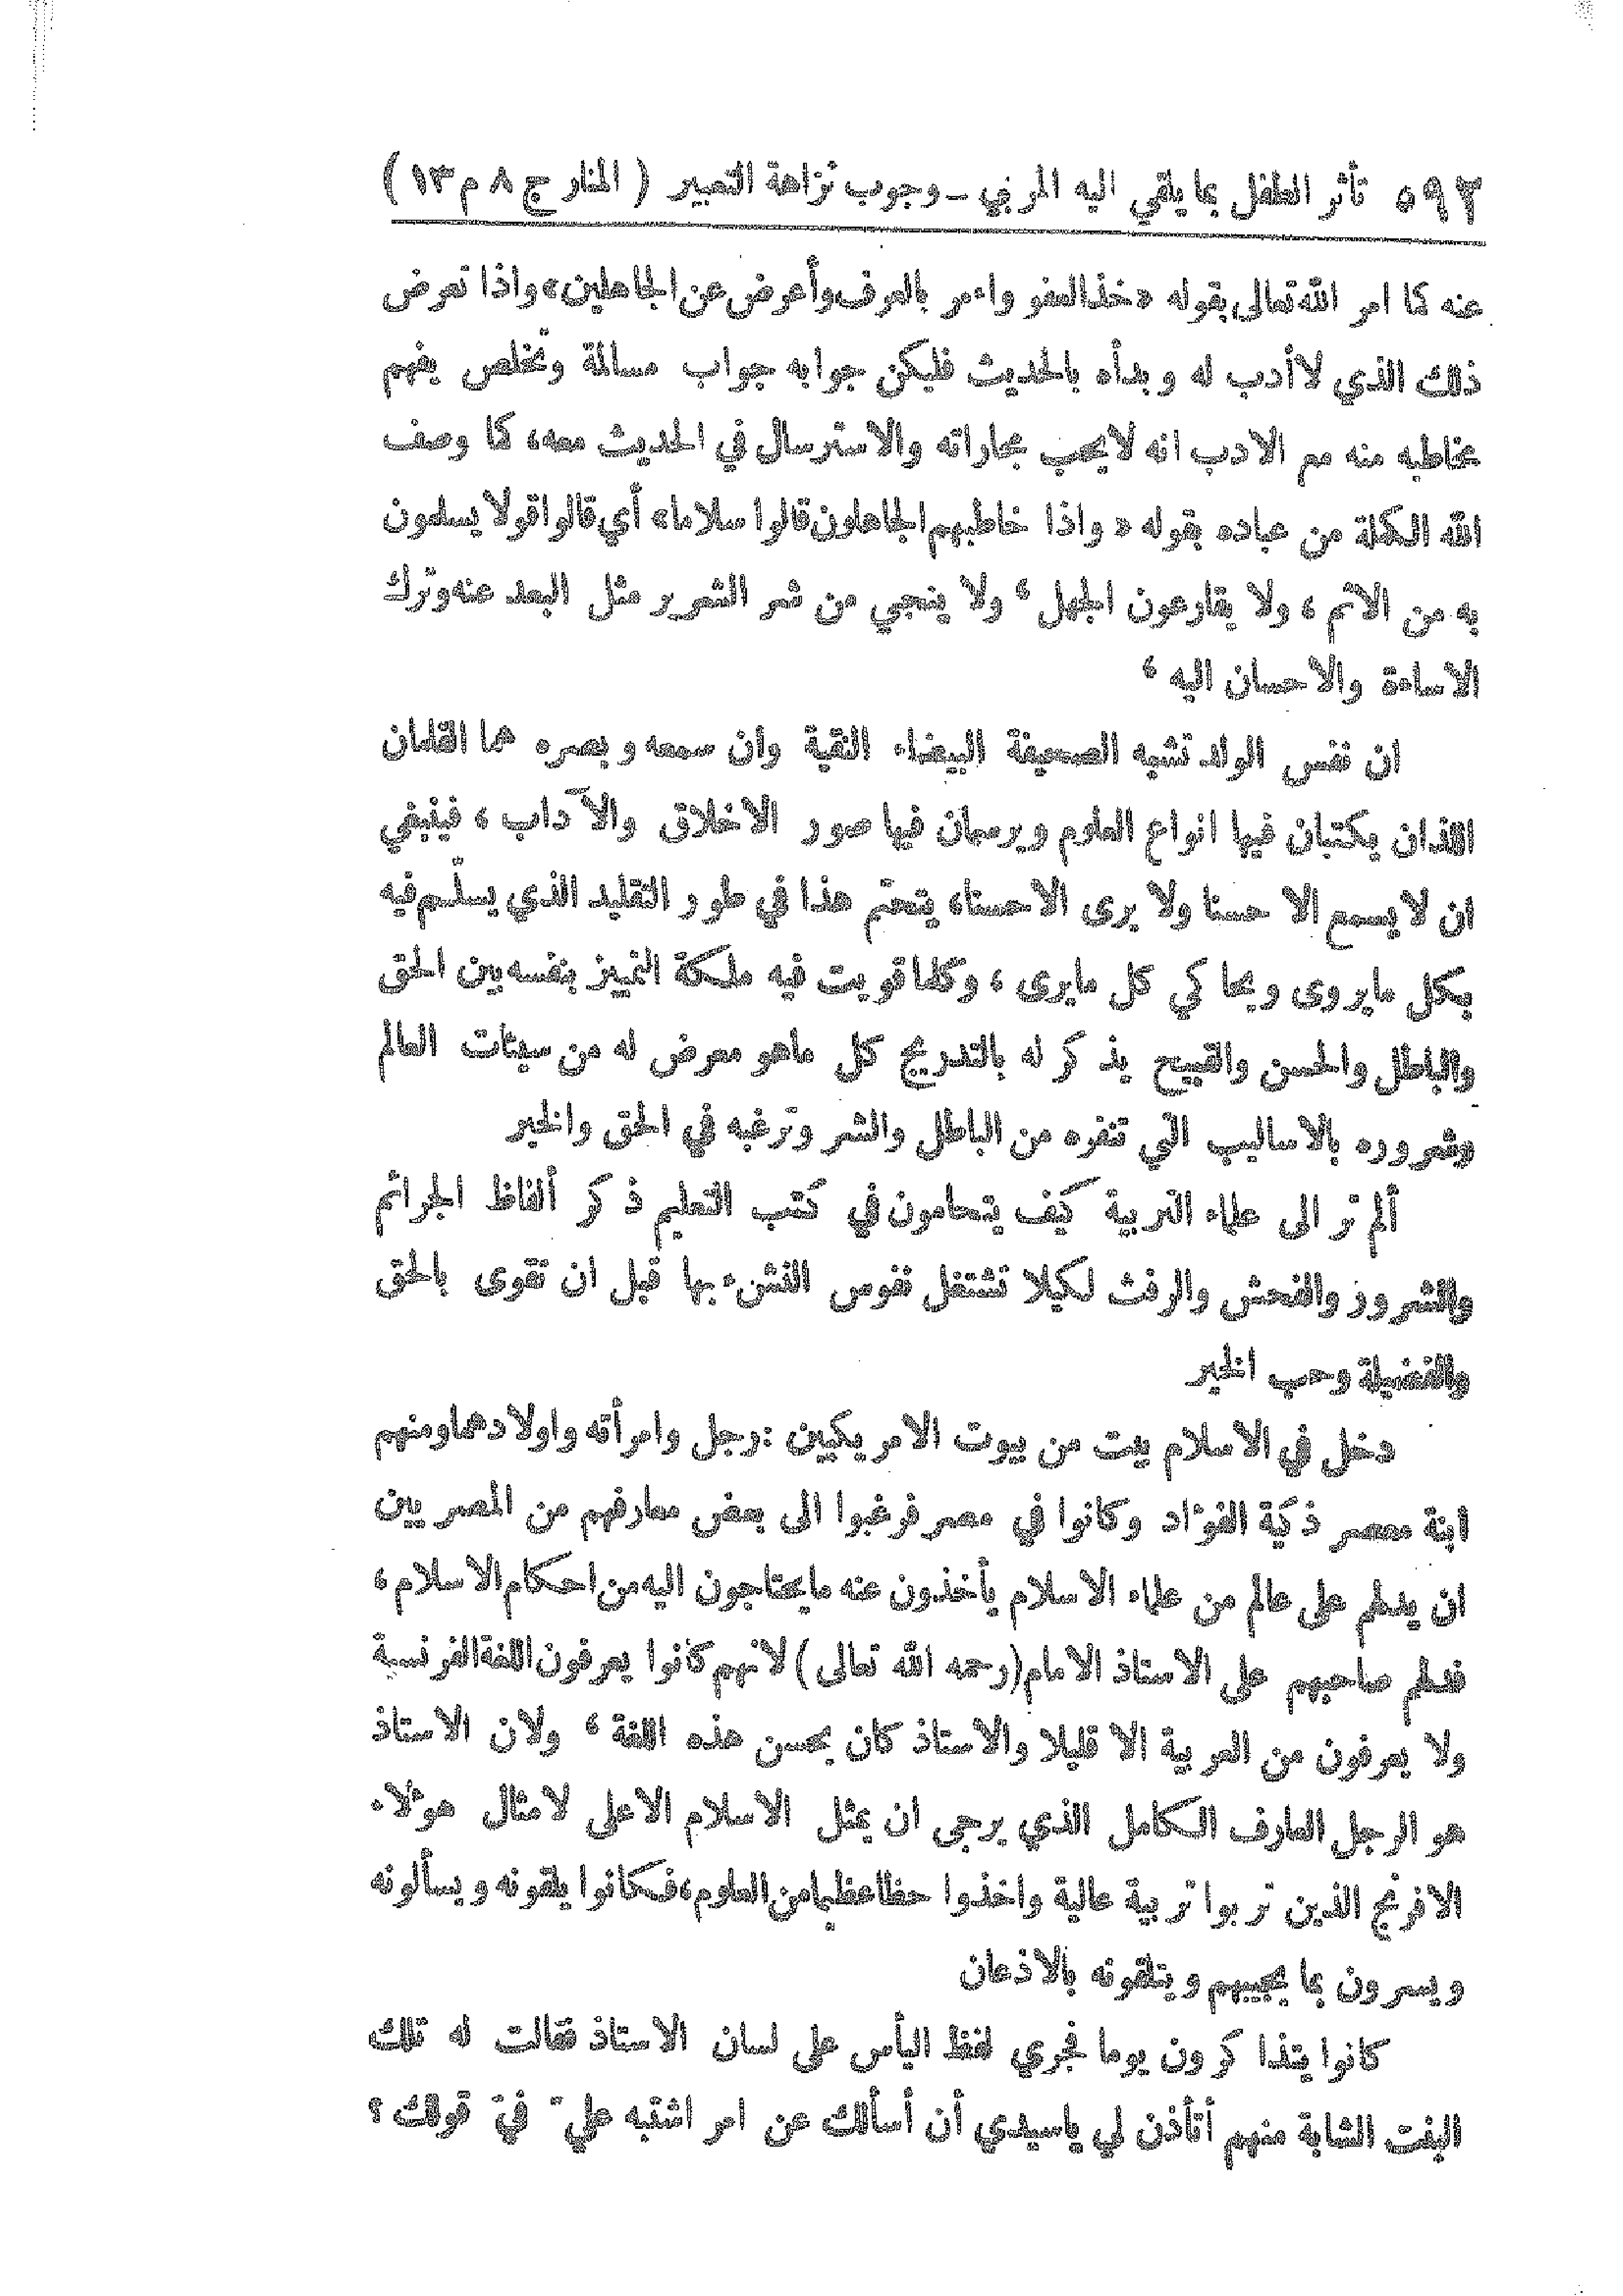 ٥٩٢ تأثر الطفل بما يلقي اليه المربي - وجوب نزاهة التعبير ( المنار ج ٨ م ١٣ )
عنه كما امر الله تعالى بقوله «خذ العفو واءمر بالعرف وأعرض عن الجاهلين» واذا تعرض
ذلك الذي لا أدب له وبدأه بالحديث فليكن جوابه جواب مسالمة وتخلص يفهم
مخاطبه منه مع الادب انه لا يحب مجاراته والاسترسال في الحديث معه، كما وصف
الله الكملة من عباده بقوله « واذا خاطبهم الجاهلون قالوا سلاما» أي قالوا قولا يسلمون
به من الاثم ، ولا يقارعون الجهل ، ولا ينجي من شر الشرير مثل البعد عنه وترك
الاساءة والاحسان اليه ،
ان نفس الولد تشبه الصحيفة البيضاء النقية وان سمعه وبصره هما القلمان
اللذان يكتبان فيها انواع العلوم ويرسمان فيها صور الاخلاق والآداب ، فينبغي
ان لا يسمع الا حسنا ولا يرى الا حسنا، يتحتم هذا في طور التقليد الذي يسلّم فيه
بكل ما يروى ويحاكي كل ما يرى ، وكلما قويت فيه ملكة التمييز بنفسه بين الحق
والباطل والحسن والقبيح يذكر له بالتدريج كل ماهو معرض له من سيئات العالم
وشروره بالاساليب التي تنفره من الباطل والشر وترغبه في الحق والخير
ألم تر الى علماء التربية كيف يتحامون في كتب التعليم ذكر ألفاظ الجرائم
والشرور والفحش والرفث لكيلا تشتغل نفوس النشء بها قبل ان تقوى بالحق
والفضيلة وحب الخير
دخل في الاسلام بيت من بيوت الامريكيين : رجل وامرأته واولادهما ومنهم
ابنة معصر ذكية الفؤاد وكانوا في مصر فرغبوا الى بعض معارفهم من المصريين
ان يدلهم على عالم من علماء الاسلام يأخذون عنه ما يحتاجون اليه من احكام الاسلام ،
فدلهم صاحبهم على الاستاذ الامام (رحمه الله تعالى) لانهم كانوا يعرفون اللغة الفرنسية
ولا يعرفون من العربية الا قليلا والاستاذ كان يحسن هذه اللغة ، ولان الاستاذ
هو الرجل العارف الكامل الذي يرجى ان يمثل الاسلام الاعلى لامثال هؤلاء
الافرنج الذين تربوا تربية عالية واخذوا حظا عظيما من العلوم ، فكانوا يلقونه ويسألونه
ويسرون بما يجيبهم ويتلقونه بالاذعان
كانوا يتذاكرون يوما فجرى لفظ اليأس على لسان الاستاذ فقالت له تلك
البنت الشابة منهم أتأذن لي ياسيدي أن أسألك عن امر اشتبه عليّ في قولك ؟